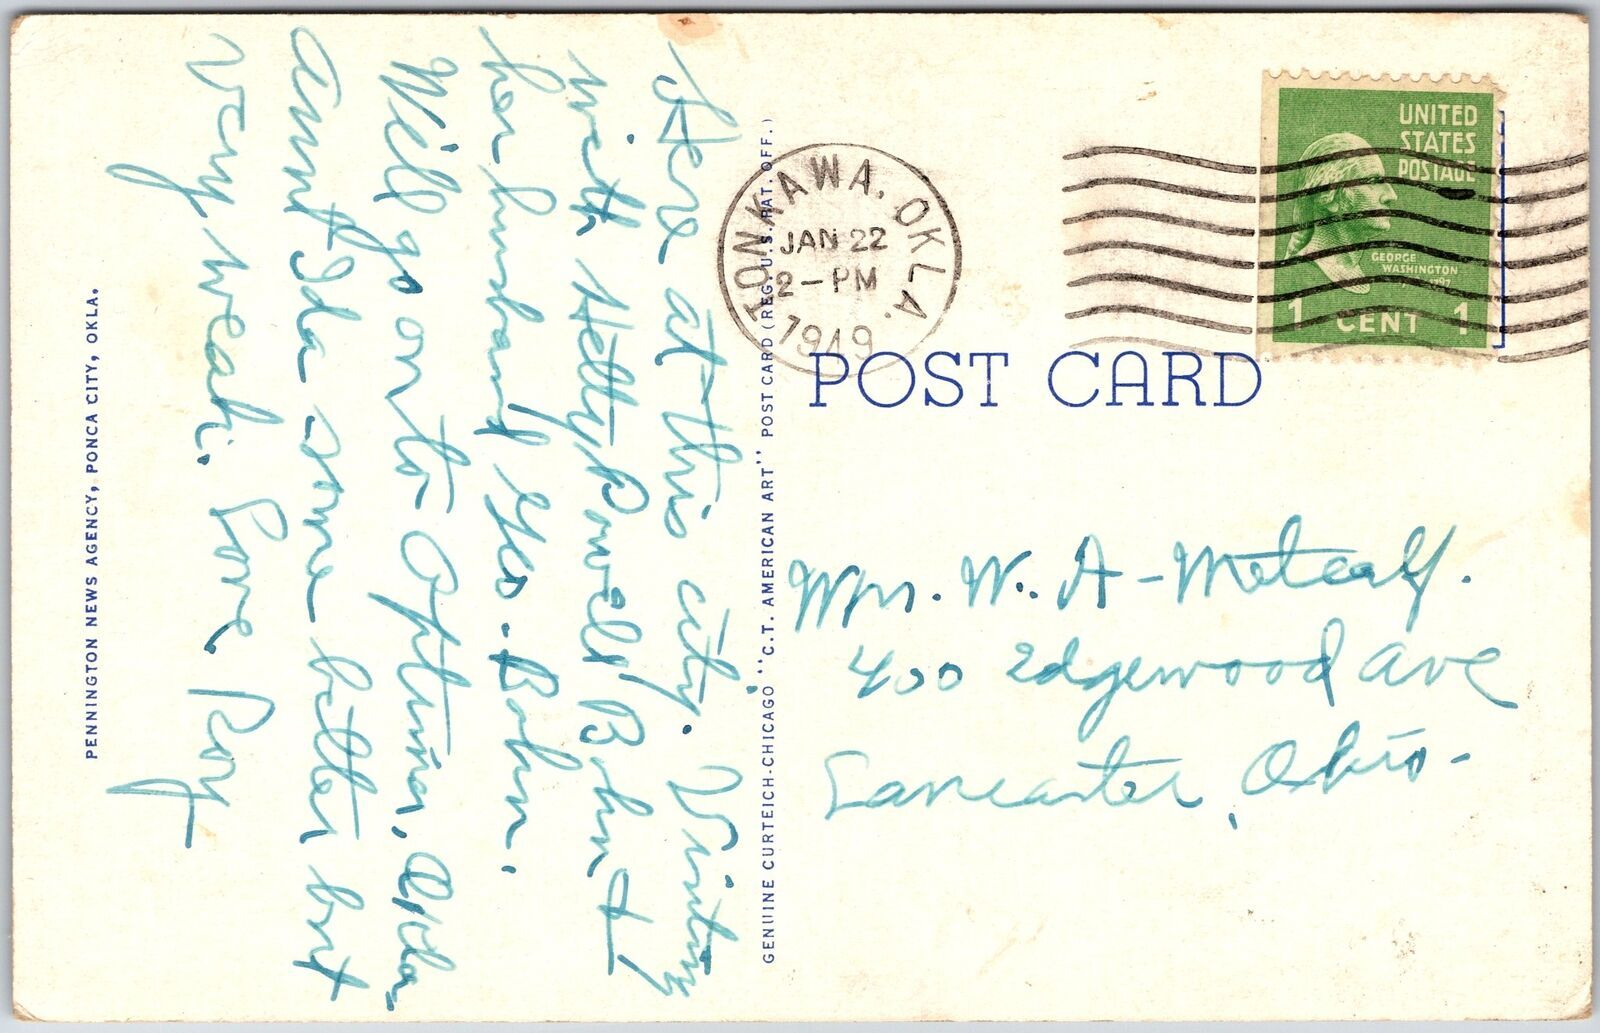 Here at this city. Visiting
with Hetty Powell Bohn &
her husband Geo. Bohn.
Will go on to Optima, Okla.
Aunt Ida some better but
very weak. Love Roy
PENNINGTON NEWS AGENCY, PONCA CITY, OKLA.
GENUINE CURTEICH-CHICAGO "C.T. AMERICAN ART" POST CARD (REG. U.S. PAT. OFF.)
TONKAWA, OKLA.
JAN 22
2-PM
1949
UNITED
STATES
POSTAGE
GEORGE
WASHINGTON
1 CENT 1
POST CARD
Mrs. W. A - Metcalf.
400 Edgewood Ave
Lancaster, Ohio -